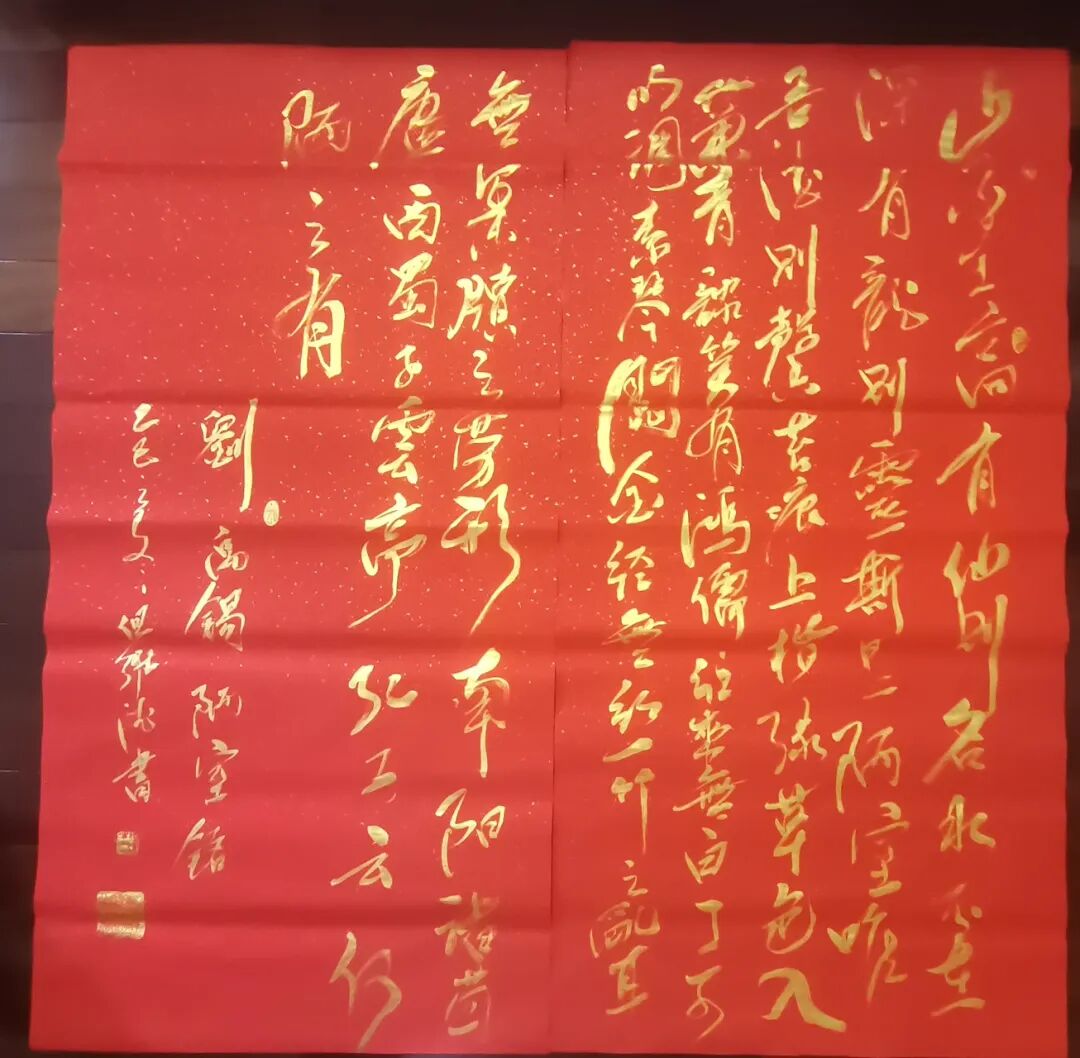 山不在高有仙則名水不在
深有龍則靈斯是陋室唯
吾德則馨苔痕上階綠草色入
簾青談笑有鴻儒往來無白丁可
以調素琴閱金經無絲竹之亂耳
無案牘之勞形南陽諸葛
廬西蜀子雲亭孔子云何
陋之有
劉禹錫陋室銘
乙巳之夏書